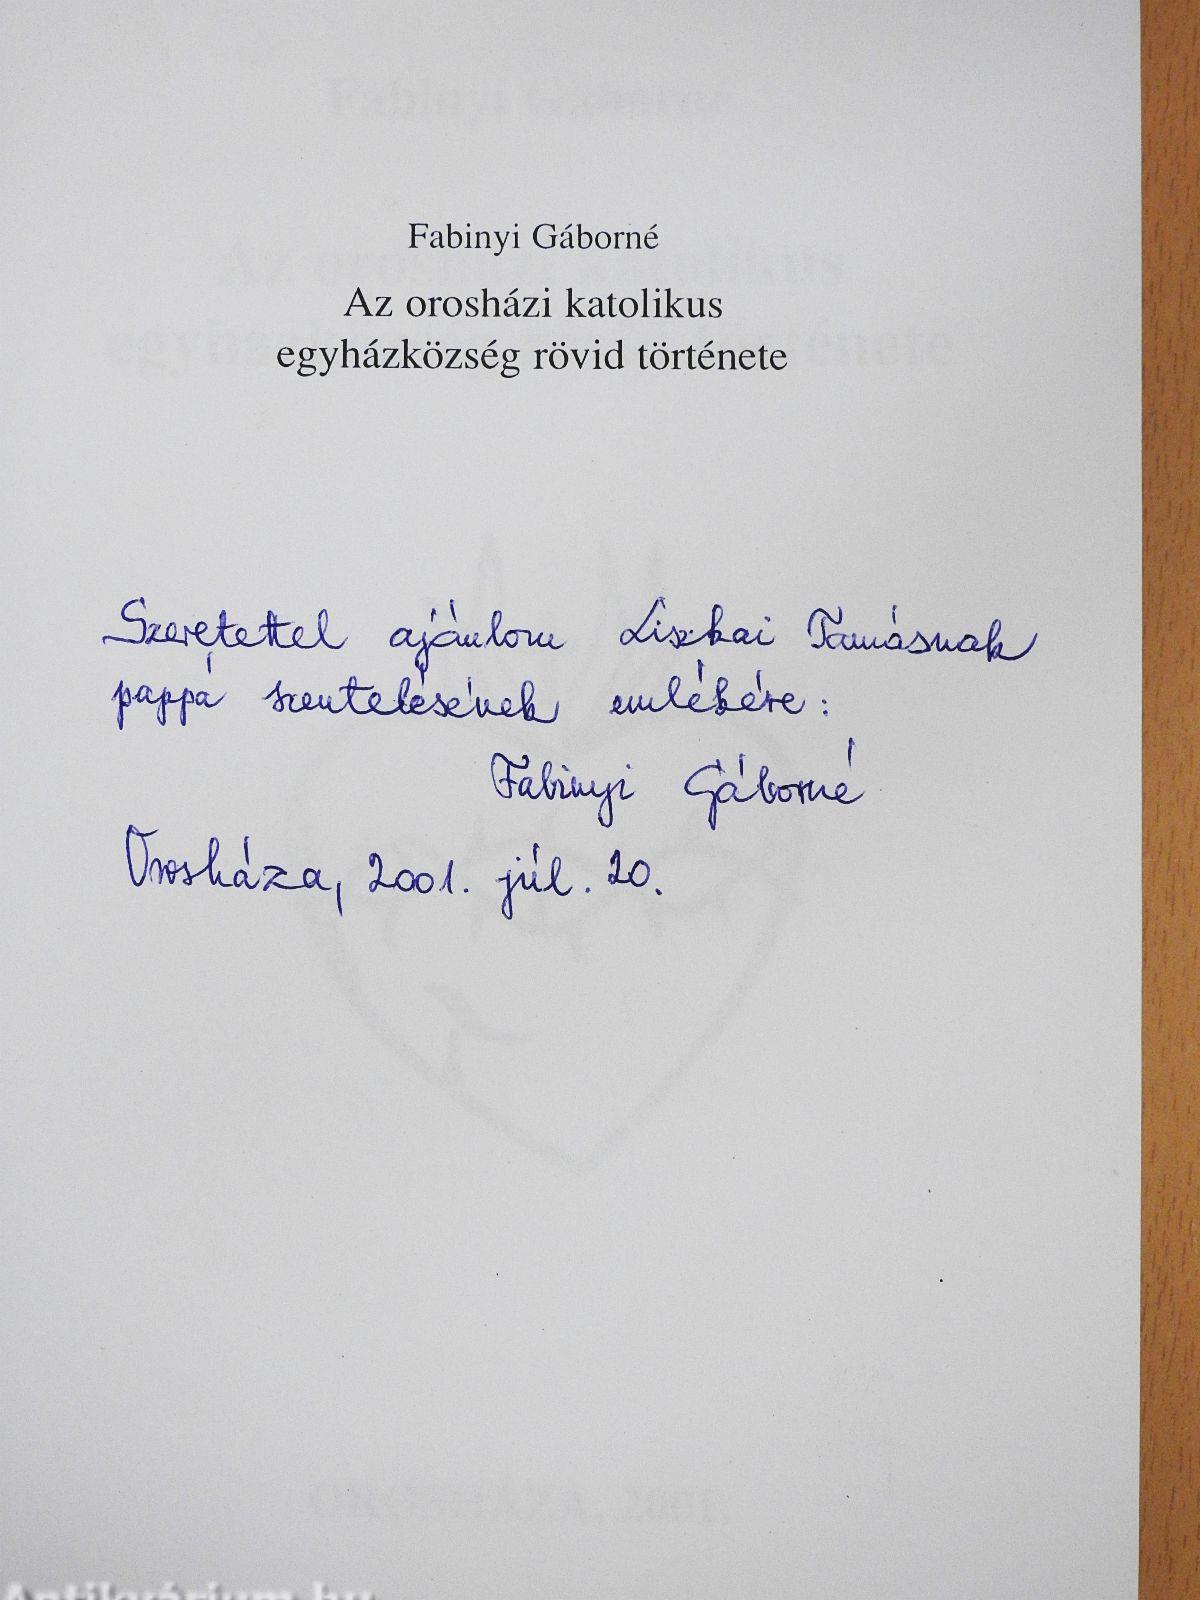 Fabinyi Gáborné
Az orosházi katolikus
egyházközség rövid története
Szeretettel ajánlom Liszkai Tamásnak
pappá szentelésének emlékére:
Fabinyi Gáborné
Orosháza, 2001. júl. 20.
OROSHÁZA, 2001.
Antikvárium.hu